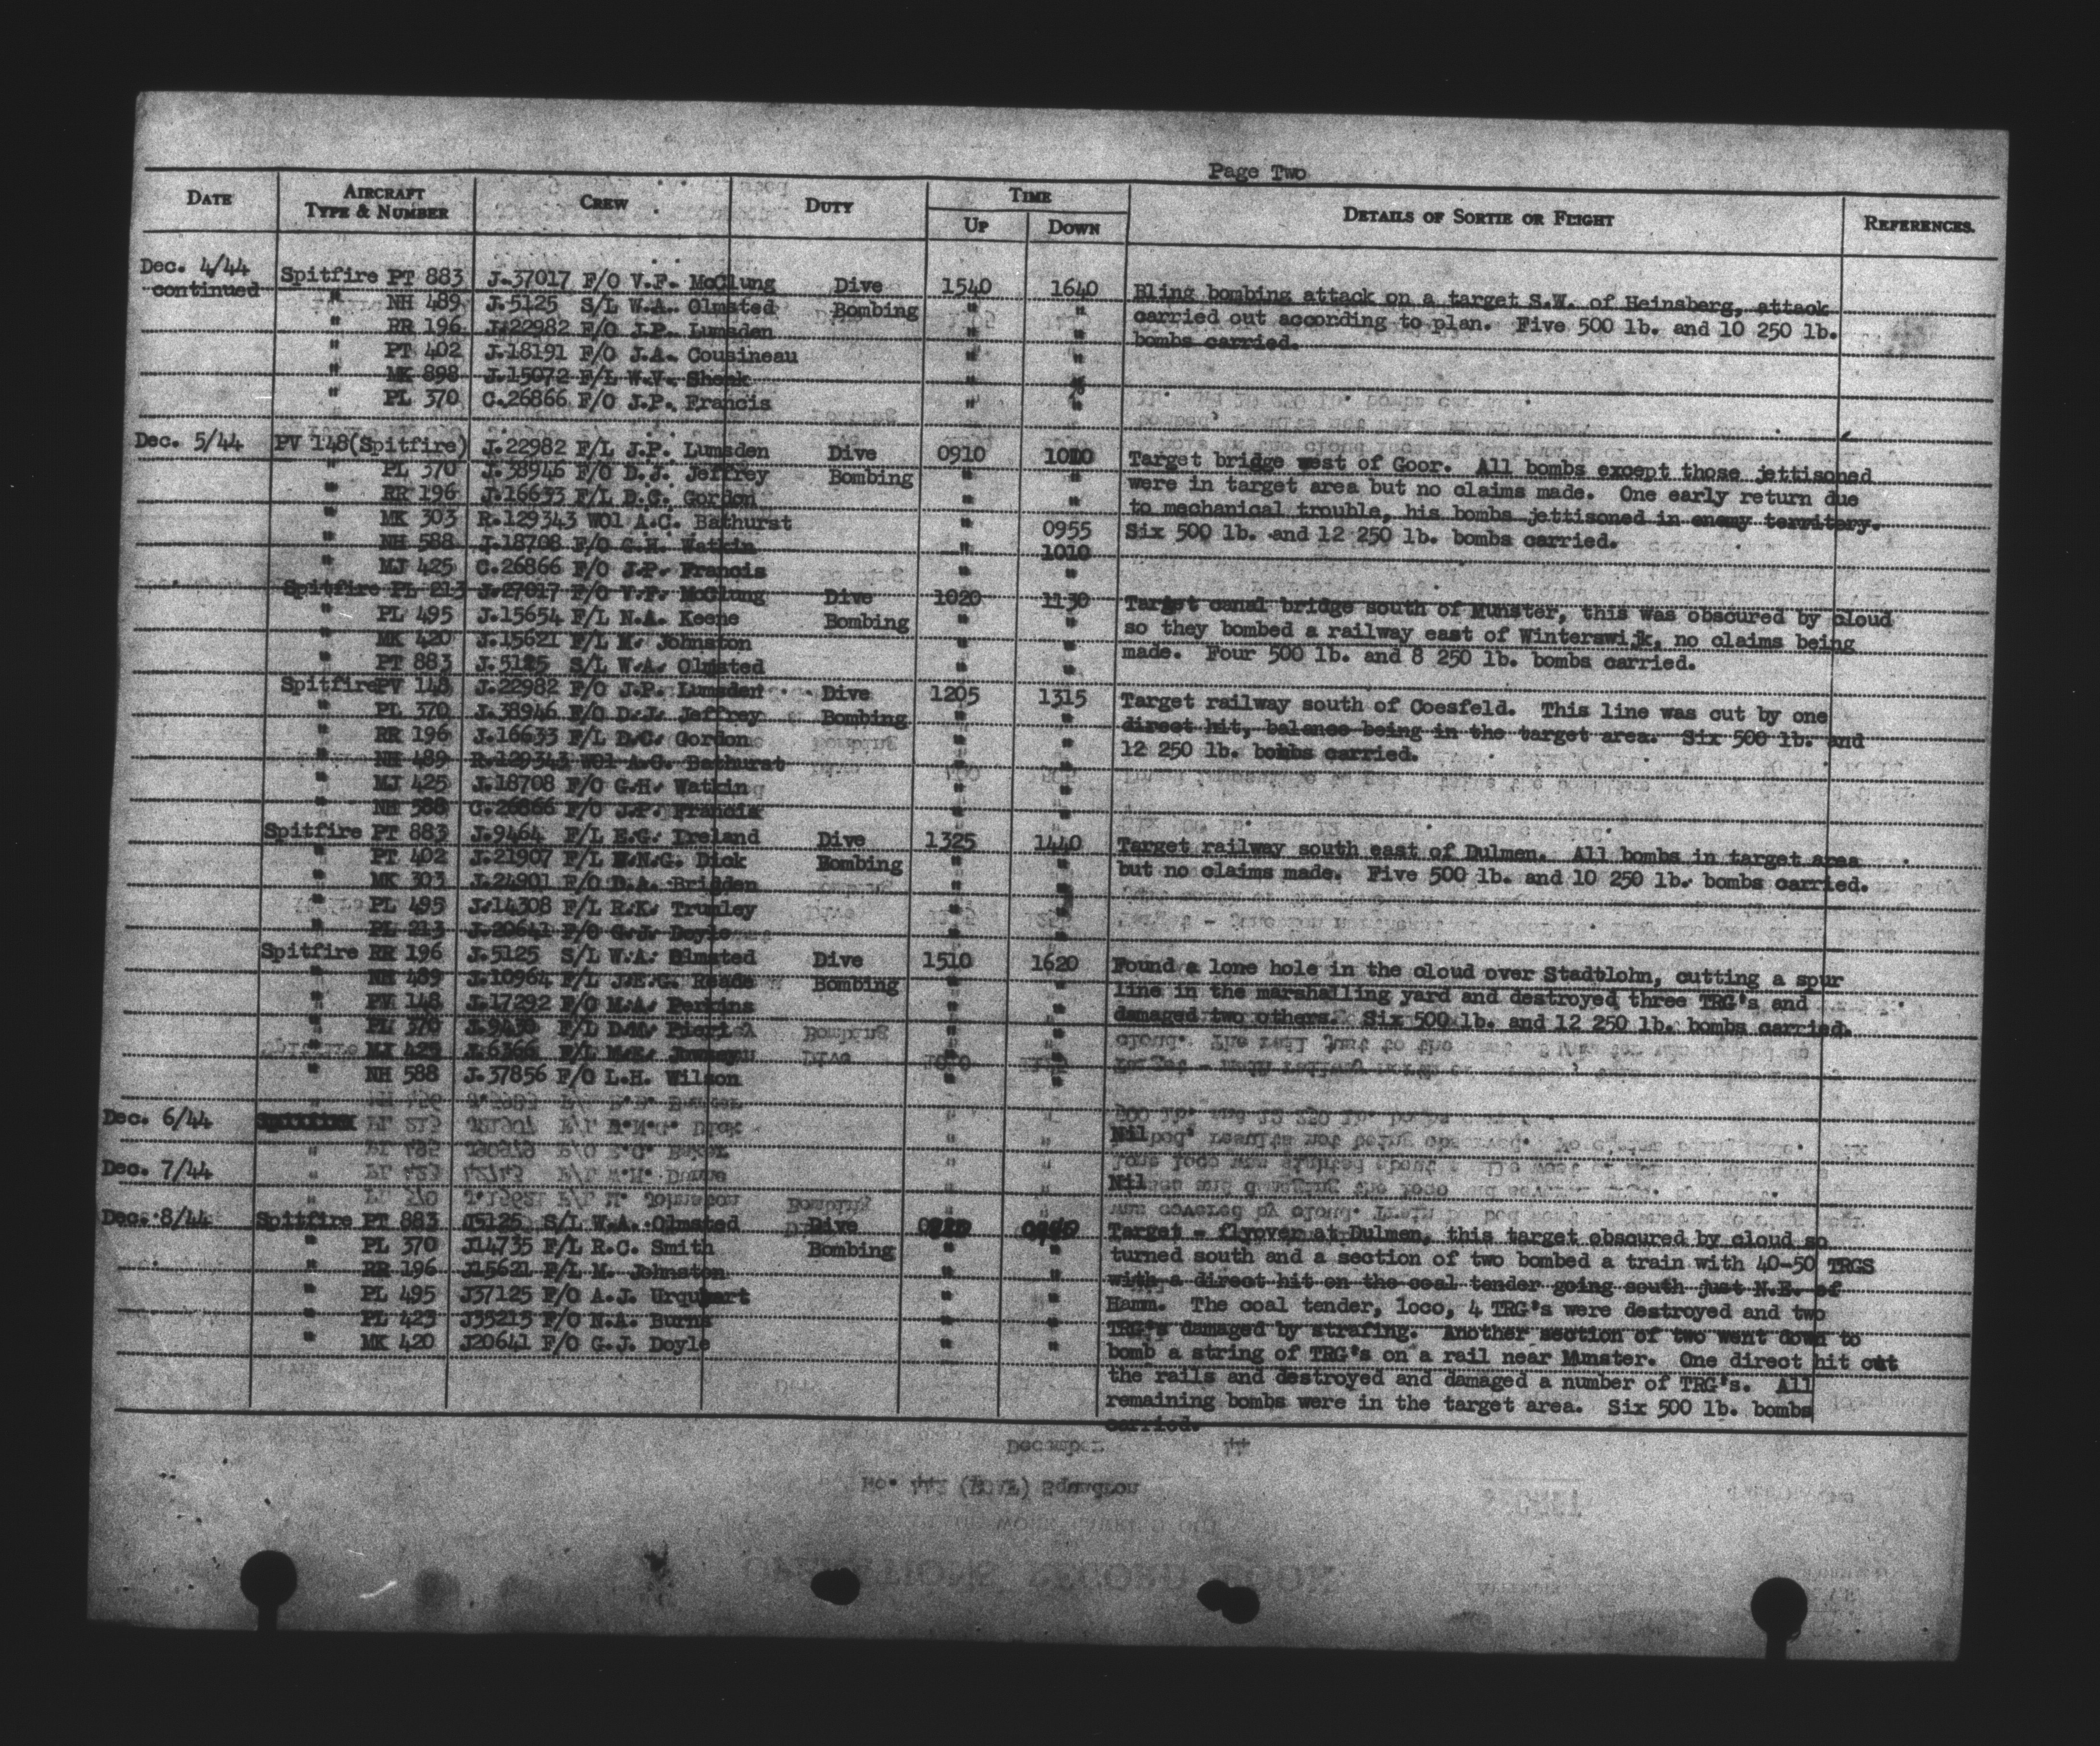 Page Two
DATE AIRCRAFT TYPE & NUMBER CREW DUTY TIME UP DOWN DETAILS OF SORTIE OR FLIGHT REFERENCES.
Dec. 4/44 Spitfire PT 883 J.37017 F/O V.F. McClung Dive 1540 1640 Bling bombing attack on a target S.W. of Heinsberg, attack
continued " NH 489 J.5125 S/L W.A. Olmsted Bombing " " carried out according to plan. Five 500 lb. and 10 250 lb.
" RR 196 J.22982 F/O J.P. Lumsden " " bombs carried.
" PT 402 J.18191 F/O J.A. Cousineau " "
" MK 898 J.15072 F/L W.V. Shenk " "
" PL 370 C.26866 F/O J.P. Francis " "
Dec. 5/44 PV 148(Spitfire) J.22982 F/L J.P. Lumsden Dive 0910 1010 Target bridge west of Goor. All bombs except those jettisoned
" PL 370 J.38946 F/O D.J. Jeffrey Bombing " " were in target area but no claims made. One early return due
" RR 196 J.16633 F/L D.C. Gordon " " to mechanical trouble, his bombs jettisoned in enemy territory.
" MK 303 R.129343 WO1 A.C. Bathurst " 0955 Six 500 lb. and 12 250 lb. bombs carried.
" NH 588 J.18708 F/O G.H. Watkin " 1010
" MJ 425 C.26866 F/O J.P. Francis " "
Spitfire PL 213 J.27017 F/O V.F. McClung Dive 1020 1130 Target canal bridge south of Munster, this was obscured by cloud
" PL 495 J.15654 F/L N.A. Keene Bombing " " so they bombed a railway east of Winterswijk, no claims being
" MK 420 J.15621 F/L M. Johnston " " made. Four 500 lb. and 8 250 lb. bombs carried.
" PT 883 J.5125 S/L W.A. Olmsted " "
Spitfire PV 148 J.22982 F/O J.P. Lumsden Dive 1205 1315 Target railway south of Coesfeld. This line was cut by one
" PL 370 J.38946 F/O D.J. Jeffrey Bombing " " direct hit, balance being in the target area. Six 500 lb. and
" RR 196 J.16633 F/L D.C. Gordon " " 12 250 lb. bombs carried.
" NH 489 R.129343 WO1 A.C. Bathurst " "
" MJ 425 J.18708 F/O G.H. Watkin " "
" NH 588 C.26866 F/O J.P. Francis " "
Spitfire PT 883 J.9464 F/L E.G. Ireland Dive 1325 1440 Target railway south east of Dulmen. All bombs in target area
" PT 402 J.21907 F/L W.N.G. Dick Bombing " " but no claims made. Five 500 lb. and 10 250 lb. bombs carried.
" MK 303 J.24901 F/O D.A. Brigden " "
" PL 495 J.14308 F/L R.K. Trumley " "
" PL 213 J.20641 F/O G.J. Doyle " "
Spitfire RR 196 J.5125 S/L W.A. Olmsted Dive 1510 1620 Found a lone hole in the cloud over Stadtlohn, cutting a spur
" NH 489 J.10964 F/L J.E.G. Reade Bombing " " line in the marshalling yard and destroyed three TRG's and
" PV 148 J.17292 F/O M.A. Perkins " " damaged two others. Six 500 lb. and 12 250 lb. bombs carried.
" PL 370 F/L " "
" MJ 425 J.6366 F/L " "
" NH 588 J.37856 F/O L.H. Wilson " "
Dec. 6/44 Nil
Dec. 7/44 Nil
Dec. 8/44 Spitfire PT 883 J5125 S/L W.A. Olmsted Dive Target - flyover at Dulmen, this target obscured by cloud so
" PL 370 J14735 F/L R.C. Smith Bombing " " turned south and a section of two bombed a train with 40-50 TRGS
" RR 196 J15621 F/L M. Johnston " " with a direct hit on the coal tender going south just N.E. of
" PL 495 J37125 F/O A.J. Urquhart " " Hamm. The coal tender, loco, 4 TRG's were destroyed and two
" PL 423 J35213 F/O N.A. Burns " " TRG's damaged by strafing. Another section of two went down to
" MK 420 J20641 F/O G.J. Doyle " " bomb a string of TRG's on a rail near Munster. One direct hit cut
the rails and destroyed and damaged a number of TRG's. All
remaining bombs were in the target area. Six 500 lb. bombs
carried.